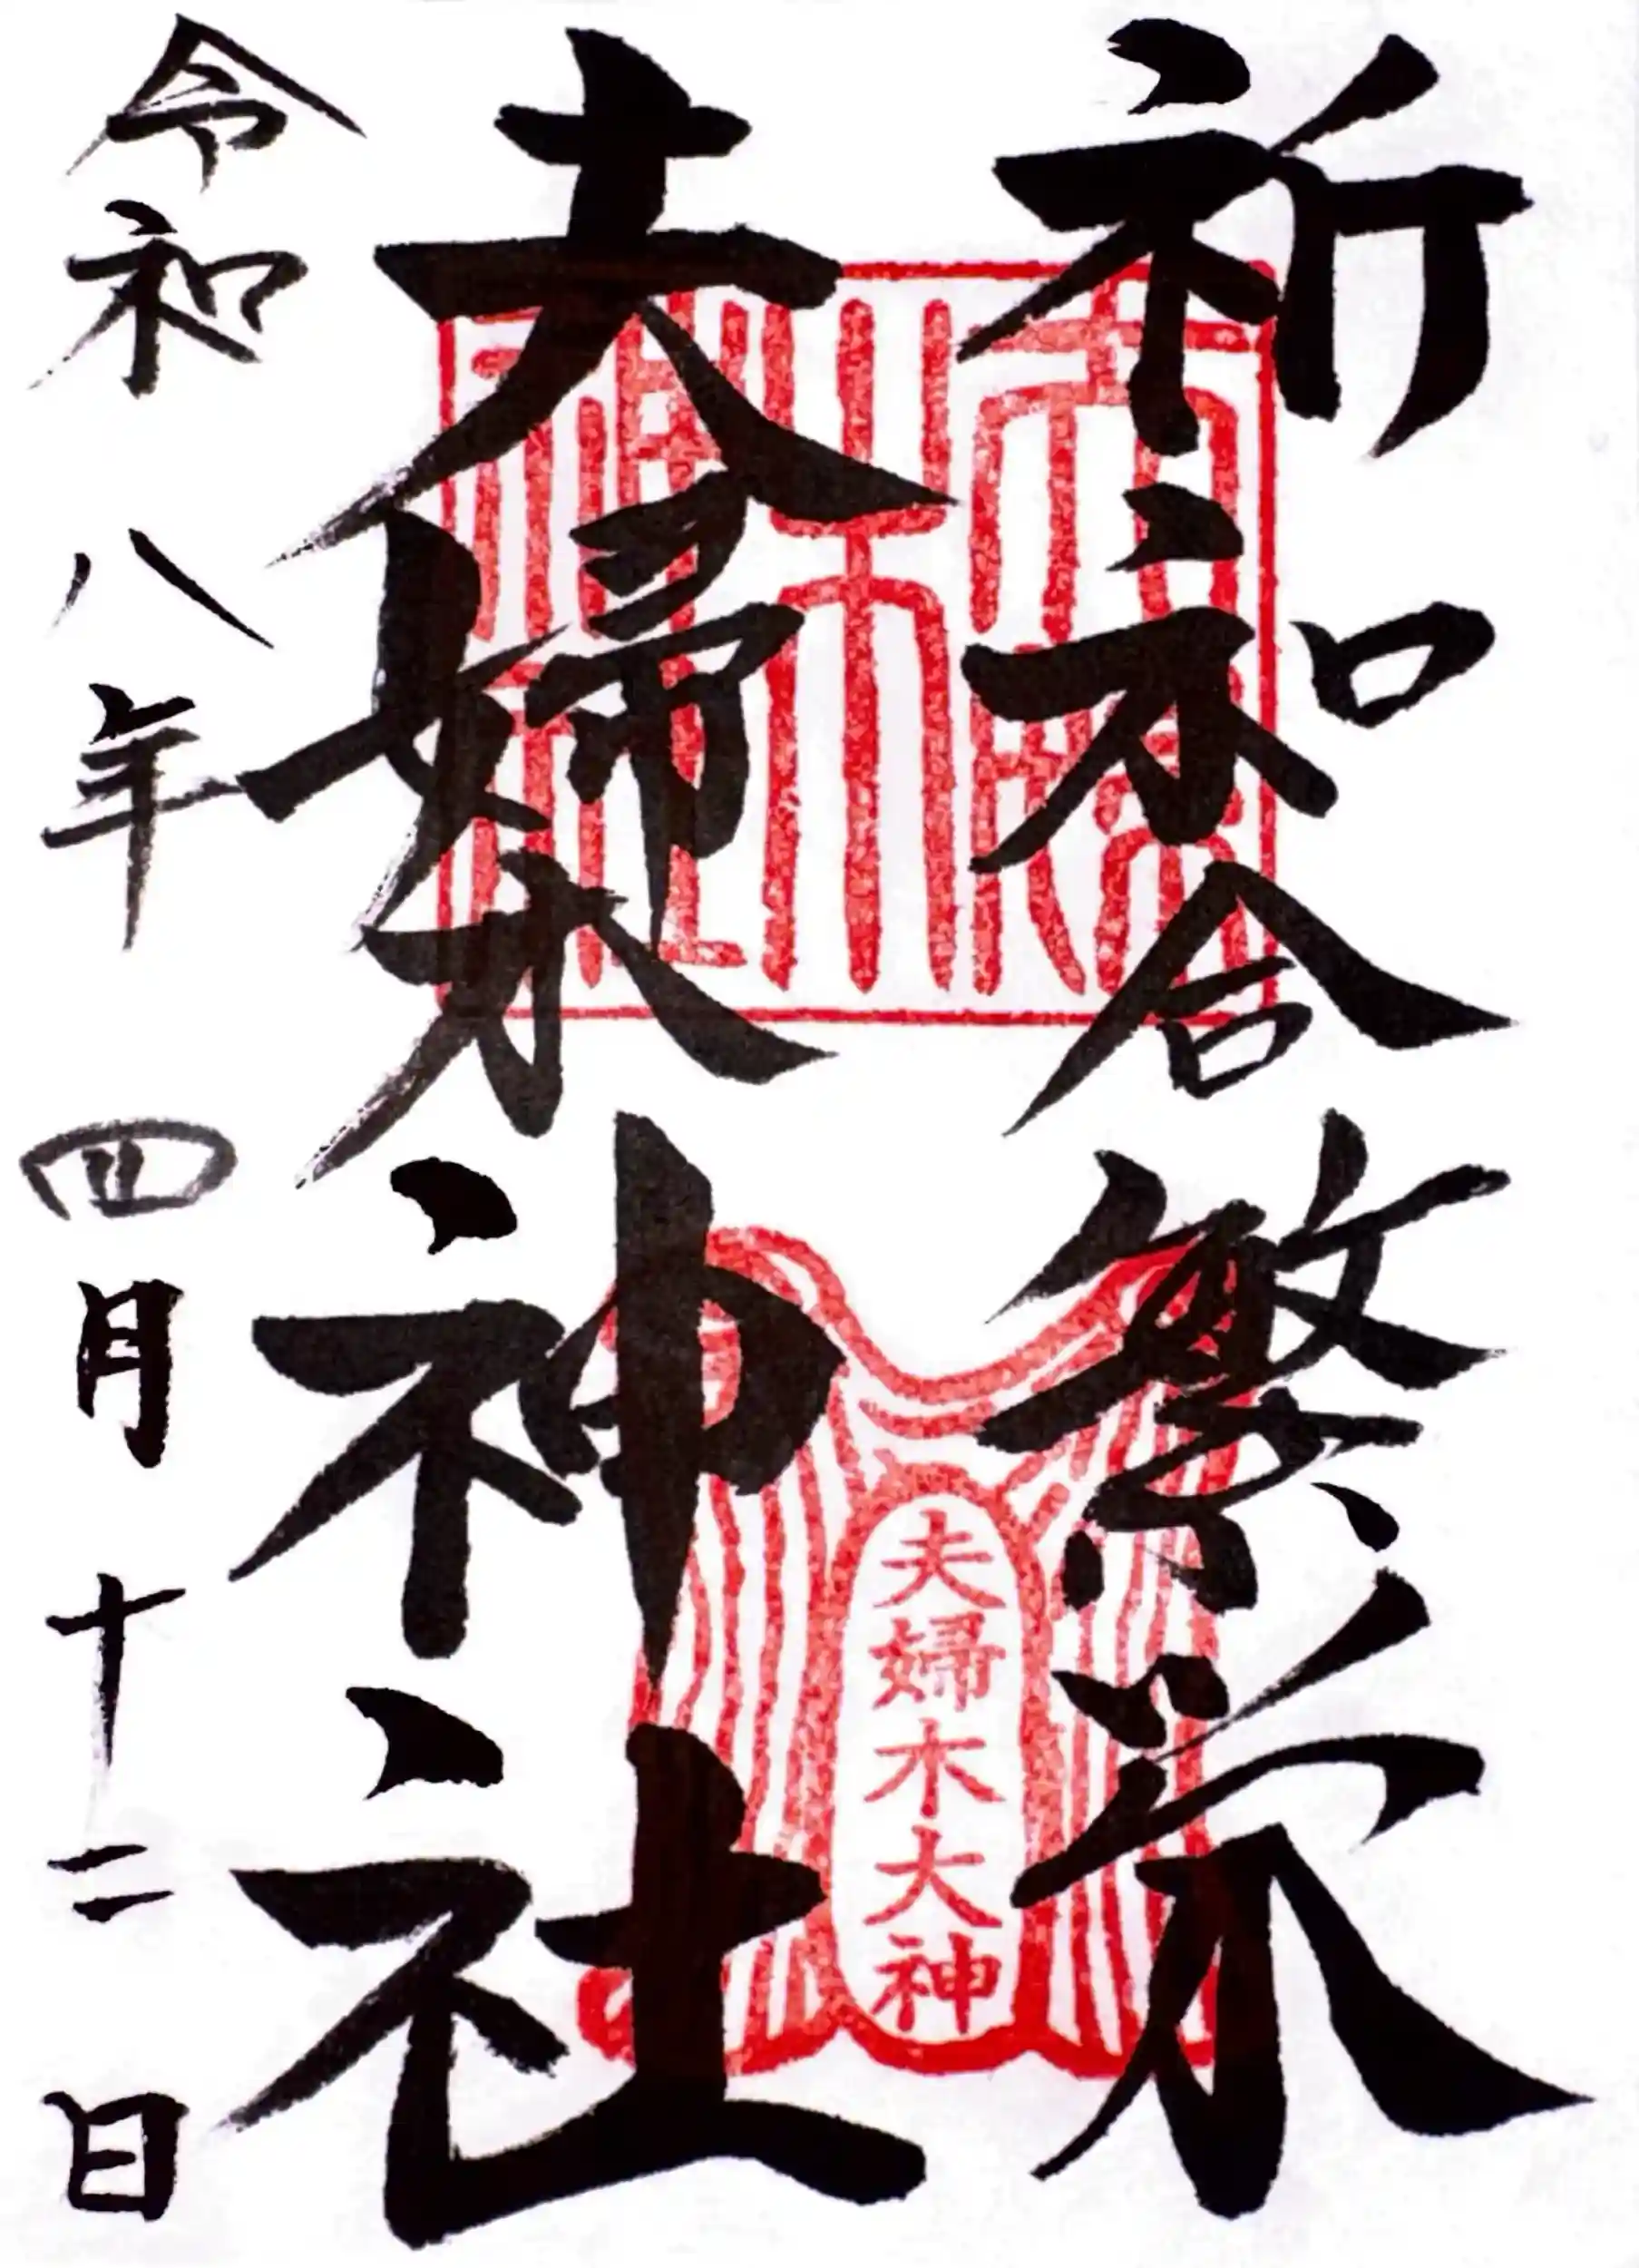 祈和合繁栄
夫婦木神社
令和八年四月十二日
夫婦木大神